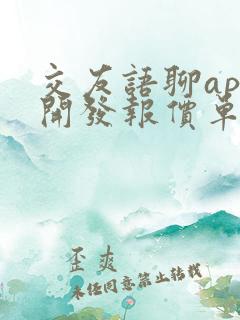 交友語聊ap
開發報價單
歪爽
未經同意禁止轉載